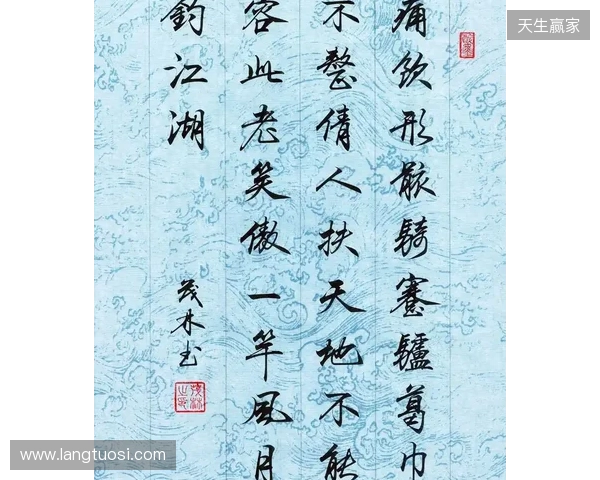 痛飲形骸騎蹇驢葛巾
不整倩人扶天地不能
容此老笑傲一竿風月
釣江湖
茂林书
天生赢家
www.langtuosi.com